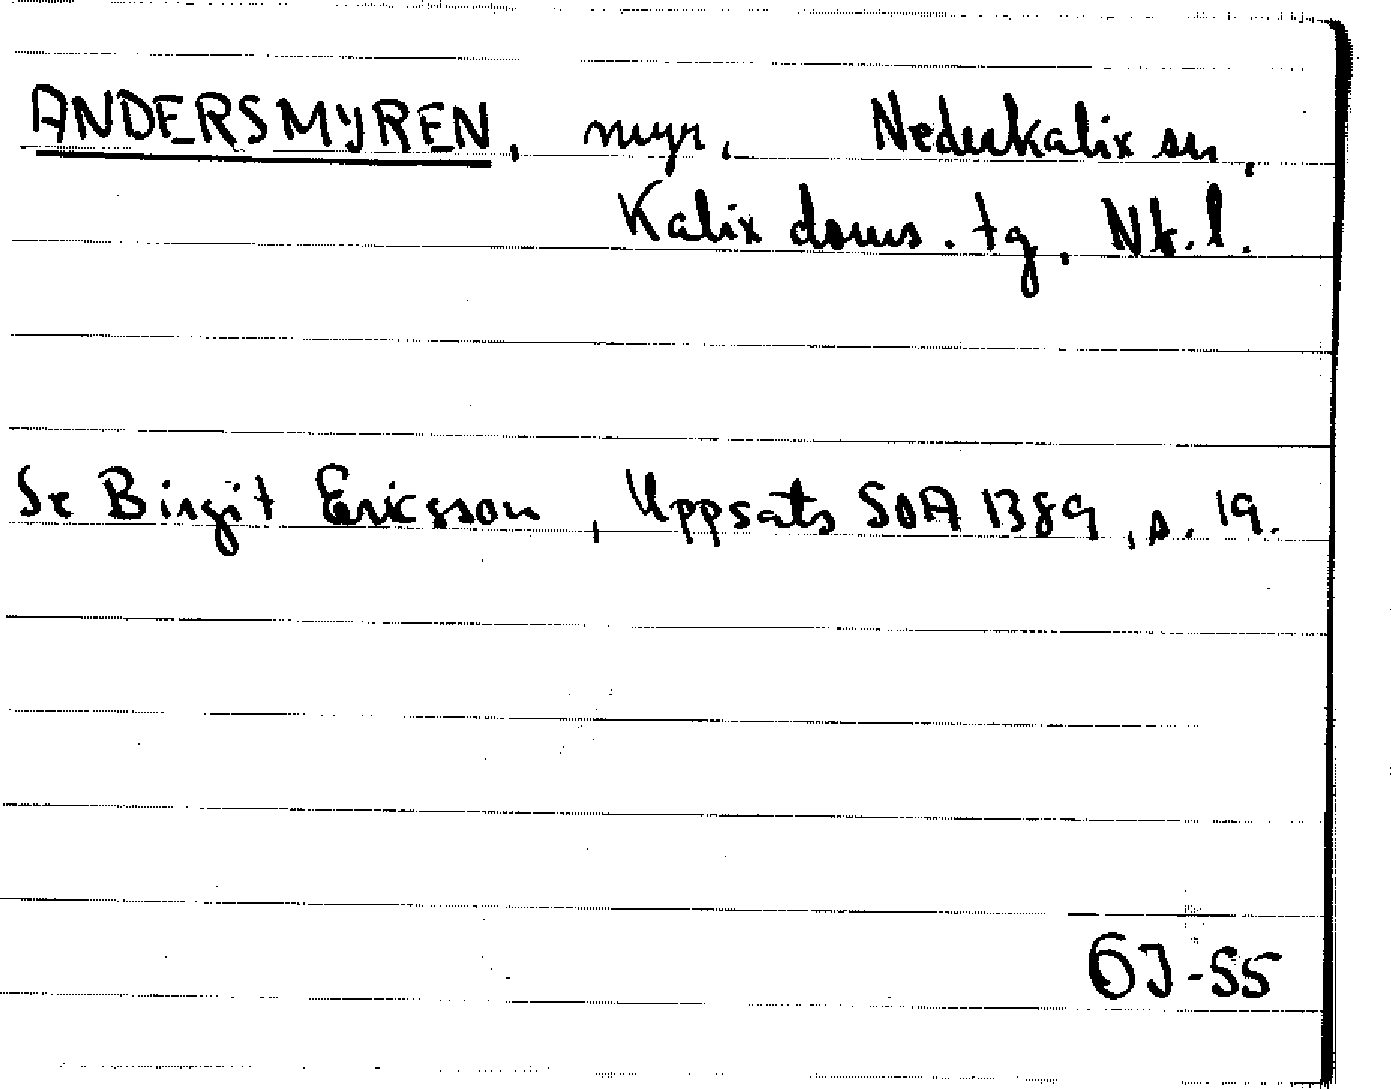 ANDERSMYREN, myr, Nederkalix sn,
Kalix doms. tg, Nb. l.
Se Birgit Ericsson, Uppsats SOA 1389, s. 19.
GJ-55